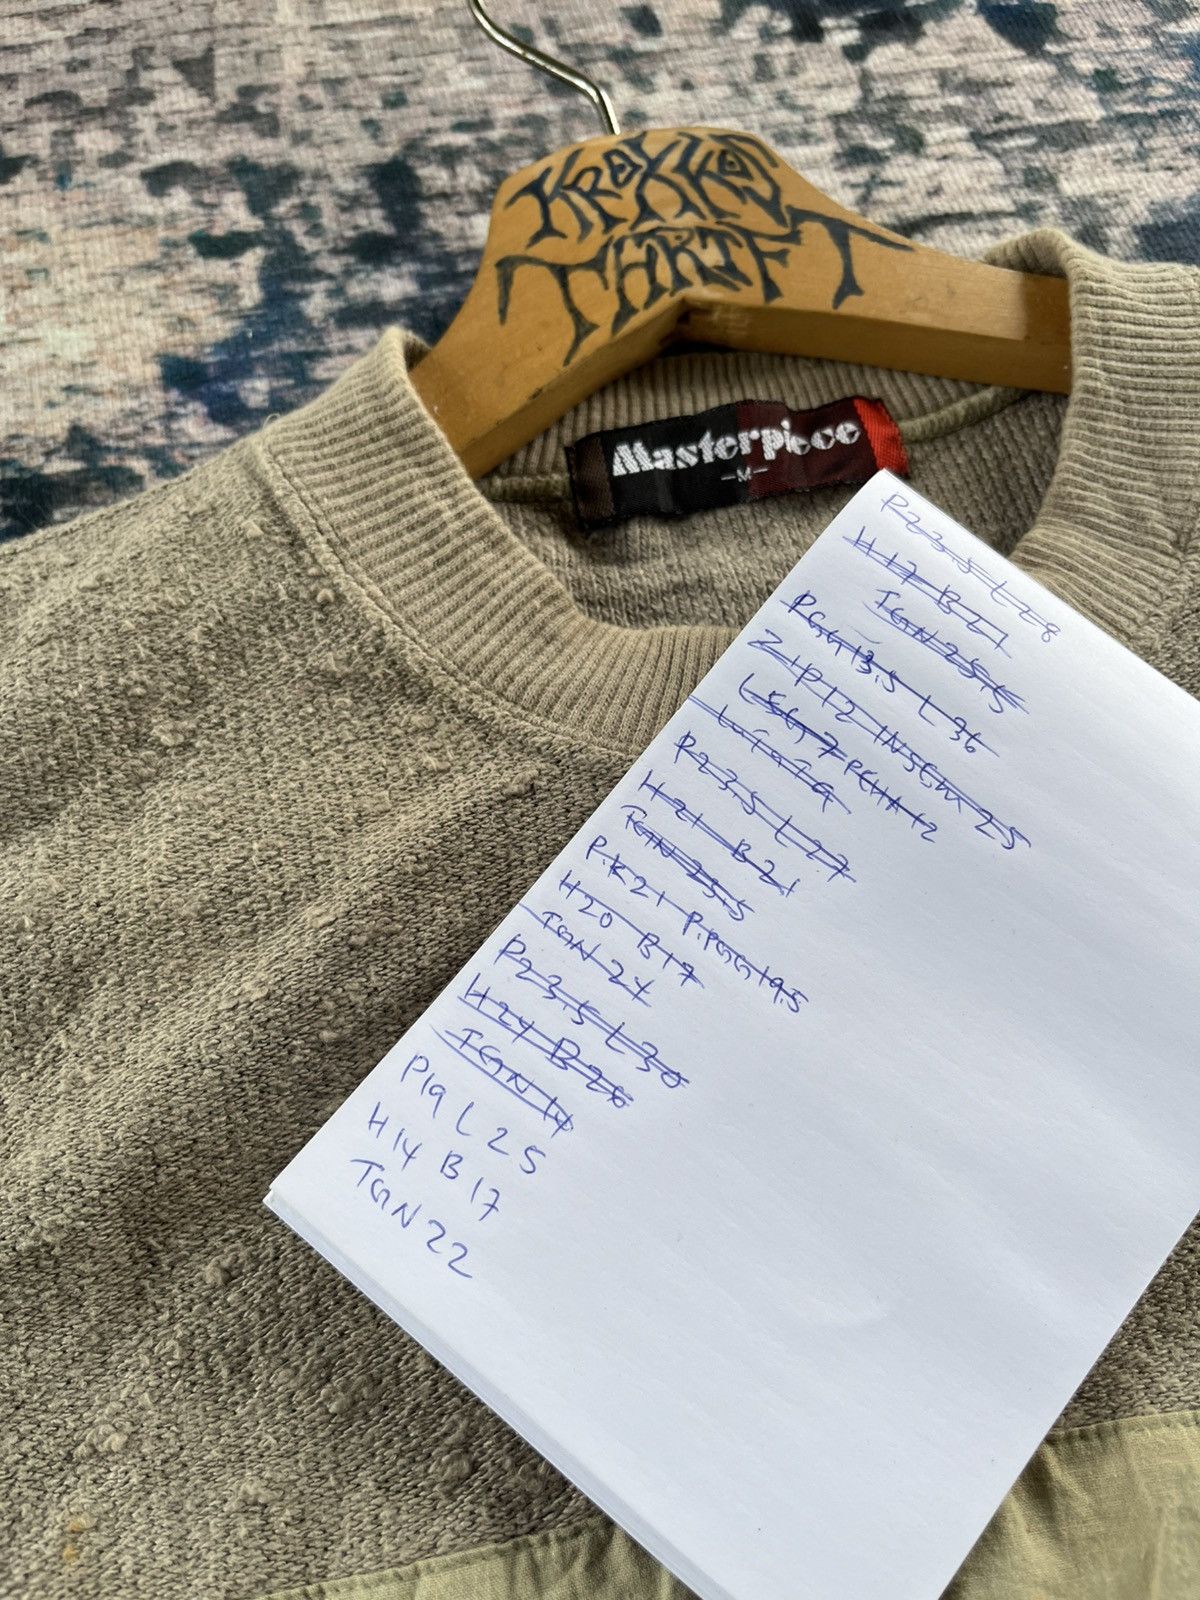 KROXKOS
THRIFT
Masterpiece
-M-
P23.5 L 28
H 17 B 21
TGN 25.5
PGG 13.5 L 36
ZIP 12 INSEAM 25
P23.5 L 27
H 21 B 21
TGN 25.5
P.K 21 P.PGG 19.5
H 20 B 17
TGN 24
P23.5 L 30
H 24 B 26
TGN 14
P19 L 25
H 14 B 17
TGN 22